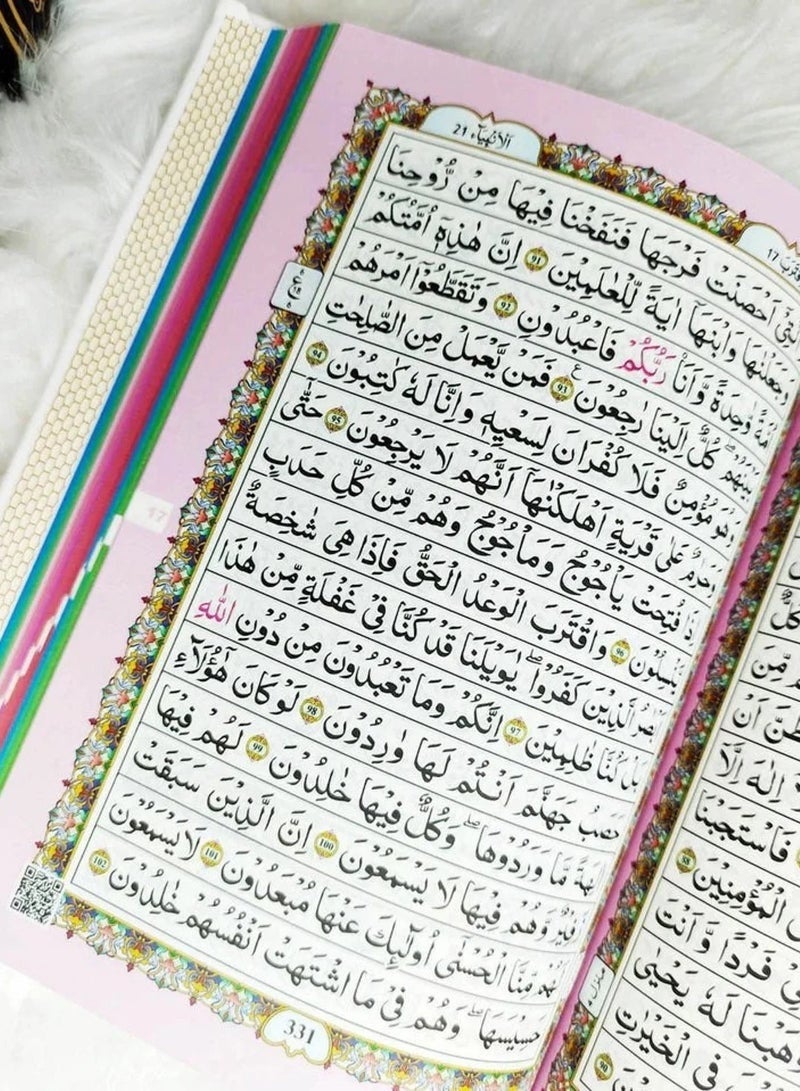 الۡاَنۡۢبِيَآء 21
17
الَّتِىۡۤ اَحۡصَنَتۡ فَرۡجَهَا فَنَفَخۡنَا فِيۡهَا مِنۡ رُّوۡحِنَا
وَجَعَلۡنٰهَا وَابۡنَهَاۤ اٰيَةً لِّلۡعٰلَمِيۡنَ 91 اِنَّ هٰذِهٖۤ اُمَّتُكُمۡ
اُمَّةً وَّاحِدَةً وَّاَنَا رَبُّكُمۡ فَاعۡبُدُوۡنِ 92 وَتَقَطَّعُوۡۤا اَمۡرَهُمۡ
بَيۡنَهُمۡ كُلٌّ اِلَيۡنَا رٰجِعُوۡنَ 93 فَمَنۡ يَّعۡمَلۡ مِنَ الصّٰلِحٰتِ
وَهُوَ مُؤۡمِنٌ فَلَا كُفۡرَانَ لِسَعۡيِهٖ وَاِنَّا لَهٗ كٰتِبُوۡنَ 94
وَحَرٰمٌ عَلٰى قَرۡيَةٍ اَهۡلَكۡنٰهَاۤ اَنَّهُمۡ لَا يَرۡجِعُوۡنَ 95 حَتّٰٓى
اِذَا فُتِحَتۡ يَاۡجُوۡجُ وَمَاۡجُوۡجُ وَهُمۡ مِّنۡ كُلِّ حَدَبٍ
يَّنۡسِلُوۡنَ 96 وَاقۡتَرَبَ الۡوَعۡدُ الۡحَقُّ فَاِذَا هِىَ شَاخِصَةٌ
اَبۡصَارُ الَّذِيۡنَ كَفَرُوۡا يٰوَيۡلَنَا قَدۡ كُنَّا فِىۡ غَفۡلَةٍ مِّنۡ هٰذَا
بَلۡ كُنَّا ظٰلِمِيۡنَ 97 اِنَّكُمۡ وَمَا تَعۡبُدُوۡنَ مِنۡ دُوۡنِ اللّٰهِ
حَصَبُ جَهَنَّمَ اَنۡتُمۡ لَهَا وٰرِدُوۡنَ 98 لَوۡ كَانَ هٰٓؤُلَآءِ
اٰلِهَةً مَّا وَرَدُوۡهَا وَكُلٌّ فِيۡهَا خٰلِدُوۡنَ 99 لَهُمۡ فِيۡهَا
زَفِيۡرٌ وَّهُمۡ فِيۡهَا لَا يَسۡمَعُوۡنَ 100 اِنَّ الَّذِيۡنَ سَبَقَتۡ
لَهُمۡ مِّنَّا الۡحُسۡنٰٓى اُولٰٓٮِٕكَ عَنۡهَا مُبۡعَدُوۡنَ 101 لَا يَسۡمَعُوۡنَ
حَسِيۡسَهَا وَهُمۡ فِىۡ مَا اشۡتَهَتۡ اَنۡفُسُهُمۡ خٰلِدُوۡنَ 102
331
17
كُلٌّ
مِّنَ
اَنۡ
اِلٰهَ اِلَّاۤ
فَاسۡتَجَبۡنَا
الۡمُؤۡمِنِيۡنَ 88
فَرۡدًا وَّاَنۡتَ
لَهٗ يَحۡيٰى
فِى الۡخَيۡرٰتِ
90